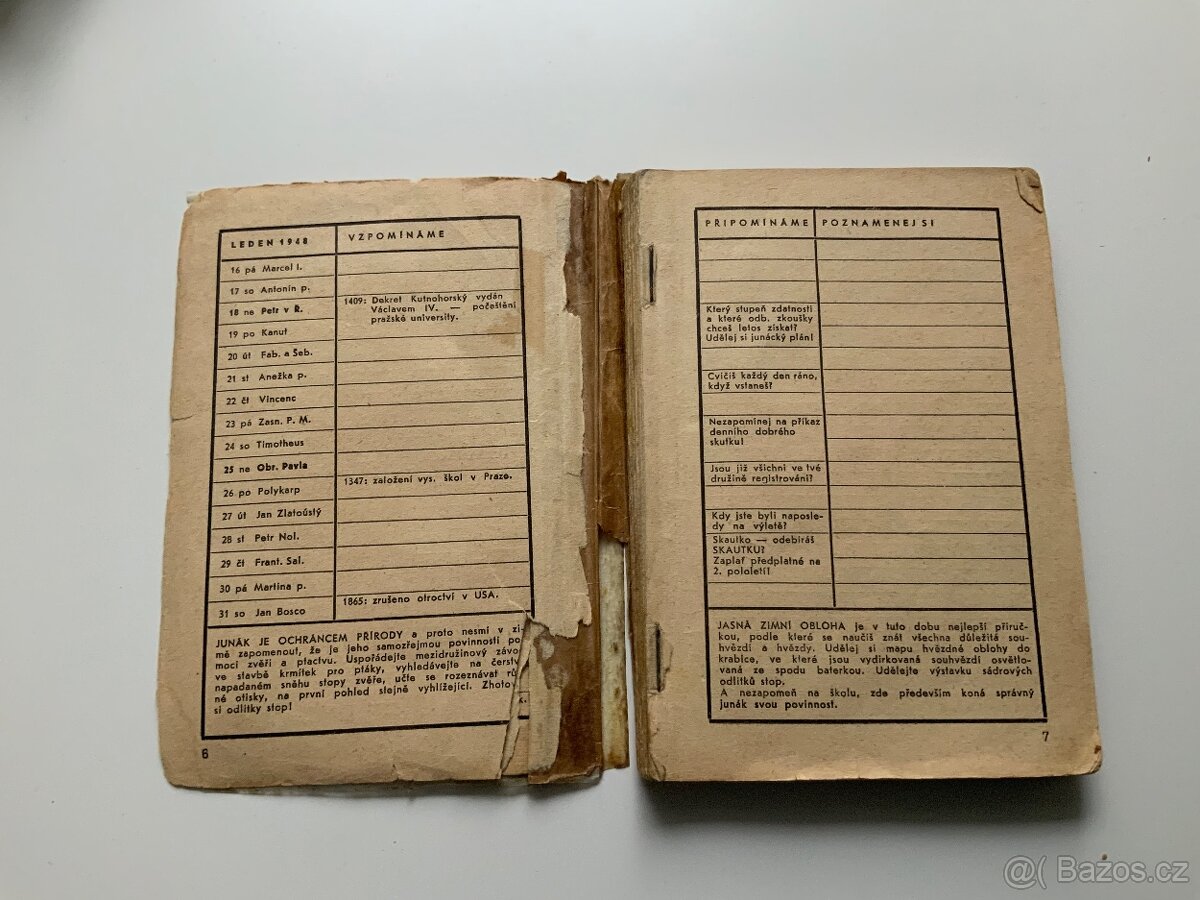 LEDEN 1948 VZPOMÍNÁME
16 pá Marcel I.
17 so Antonín p.
18 ne Petr v Ř. 1409: Dekret Kutnohorský vydán
Václavem IV. — počeštění
pražské university.
19 po Kanut
20 út Fab. a Šeb.
21 st Anežka p.
22 čt Vincenc
23 pá Zasn. P. M.
24 so Timotheus
25 ne Obr. Pavla
26 po Polykarp 1347: založení vys. škol v Praze.
27 út Jan Zlatoústý
28 st Petr Nol.
29 čt Frant. Sal.
30 pá Martina p.
31 so Jan Bosco 1865: zrušeno otroctví v USA.
JUNÁK JE OCHRÁNCEM PŘÍRODY a proto nesmí v zi-
mě zapomenout, že je jeho samozřejmou povinností po-
moci zvěři a ptactvu. Uspořádejte mezidružinový závo
ve stavbě krmítek pro ptáky, vyhledávejte na čerstv
napadaném sněhu stopy zvěře, učte se rozeznávat rů
né otisky, na první pohled stejně vyhlížející. Zhotov
si odlitky stop! k.
6
PŘIPOMÍNÁME POZNAMENEJ SI
Který stupeň zdatnosti
a které odb. zkoušky
chceš letos získat?
Udělej si junácký plán!
Cvičíš každý den ráno,
když vstaneš?
Nezapomínej na příkaz
denního dobrého
skutku!
Jsou již všichni ve tvé
družině registrováni?
Kdy jste byli naposle-
dy na výletě?
Skautko — odebíráš
SKAUTKU?
Zaplať předplatné na
2. pololetí!
JASNÁ ZIMNÍ OBLOHA je v tuto dobu nejlepší příruč-
kou, podle které se naučíš znát všechna důležitá sou-
hvězdí a hvězdy. Udělej si mapu hvězdné oblohy do
krabice, ve která jsou vydírkovaná souhvězdí osvětlo-
vaná ze spodu baterkou. Udělejte výstavku sádrových
odlitků stop.
A nezapomeň na školu, zde především koná správný
junák svou povinnost.
7
@( Bazos.cz